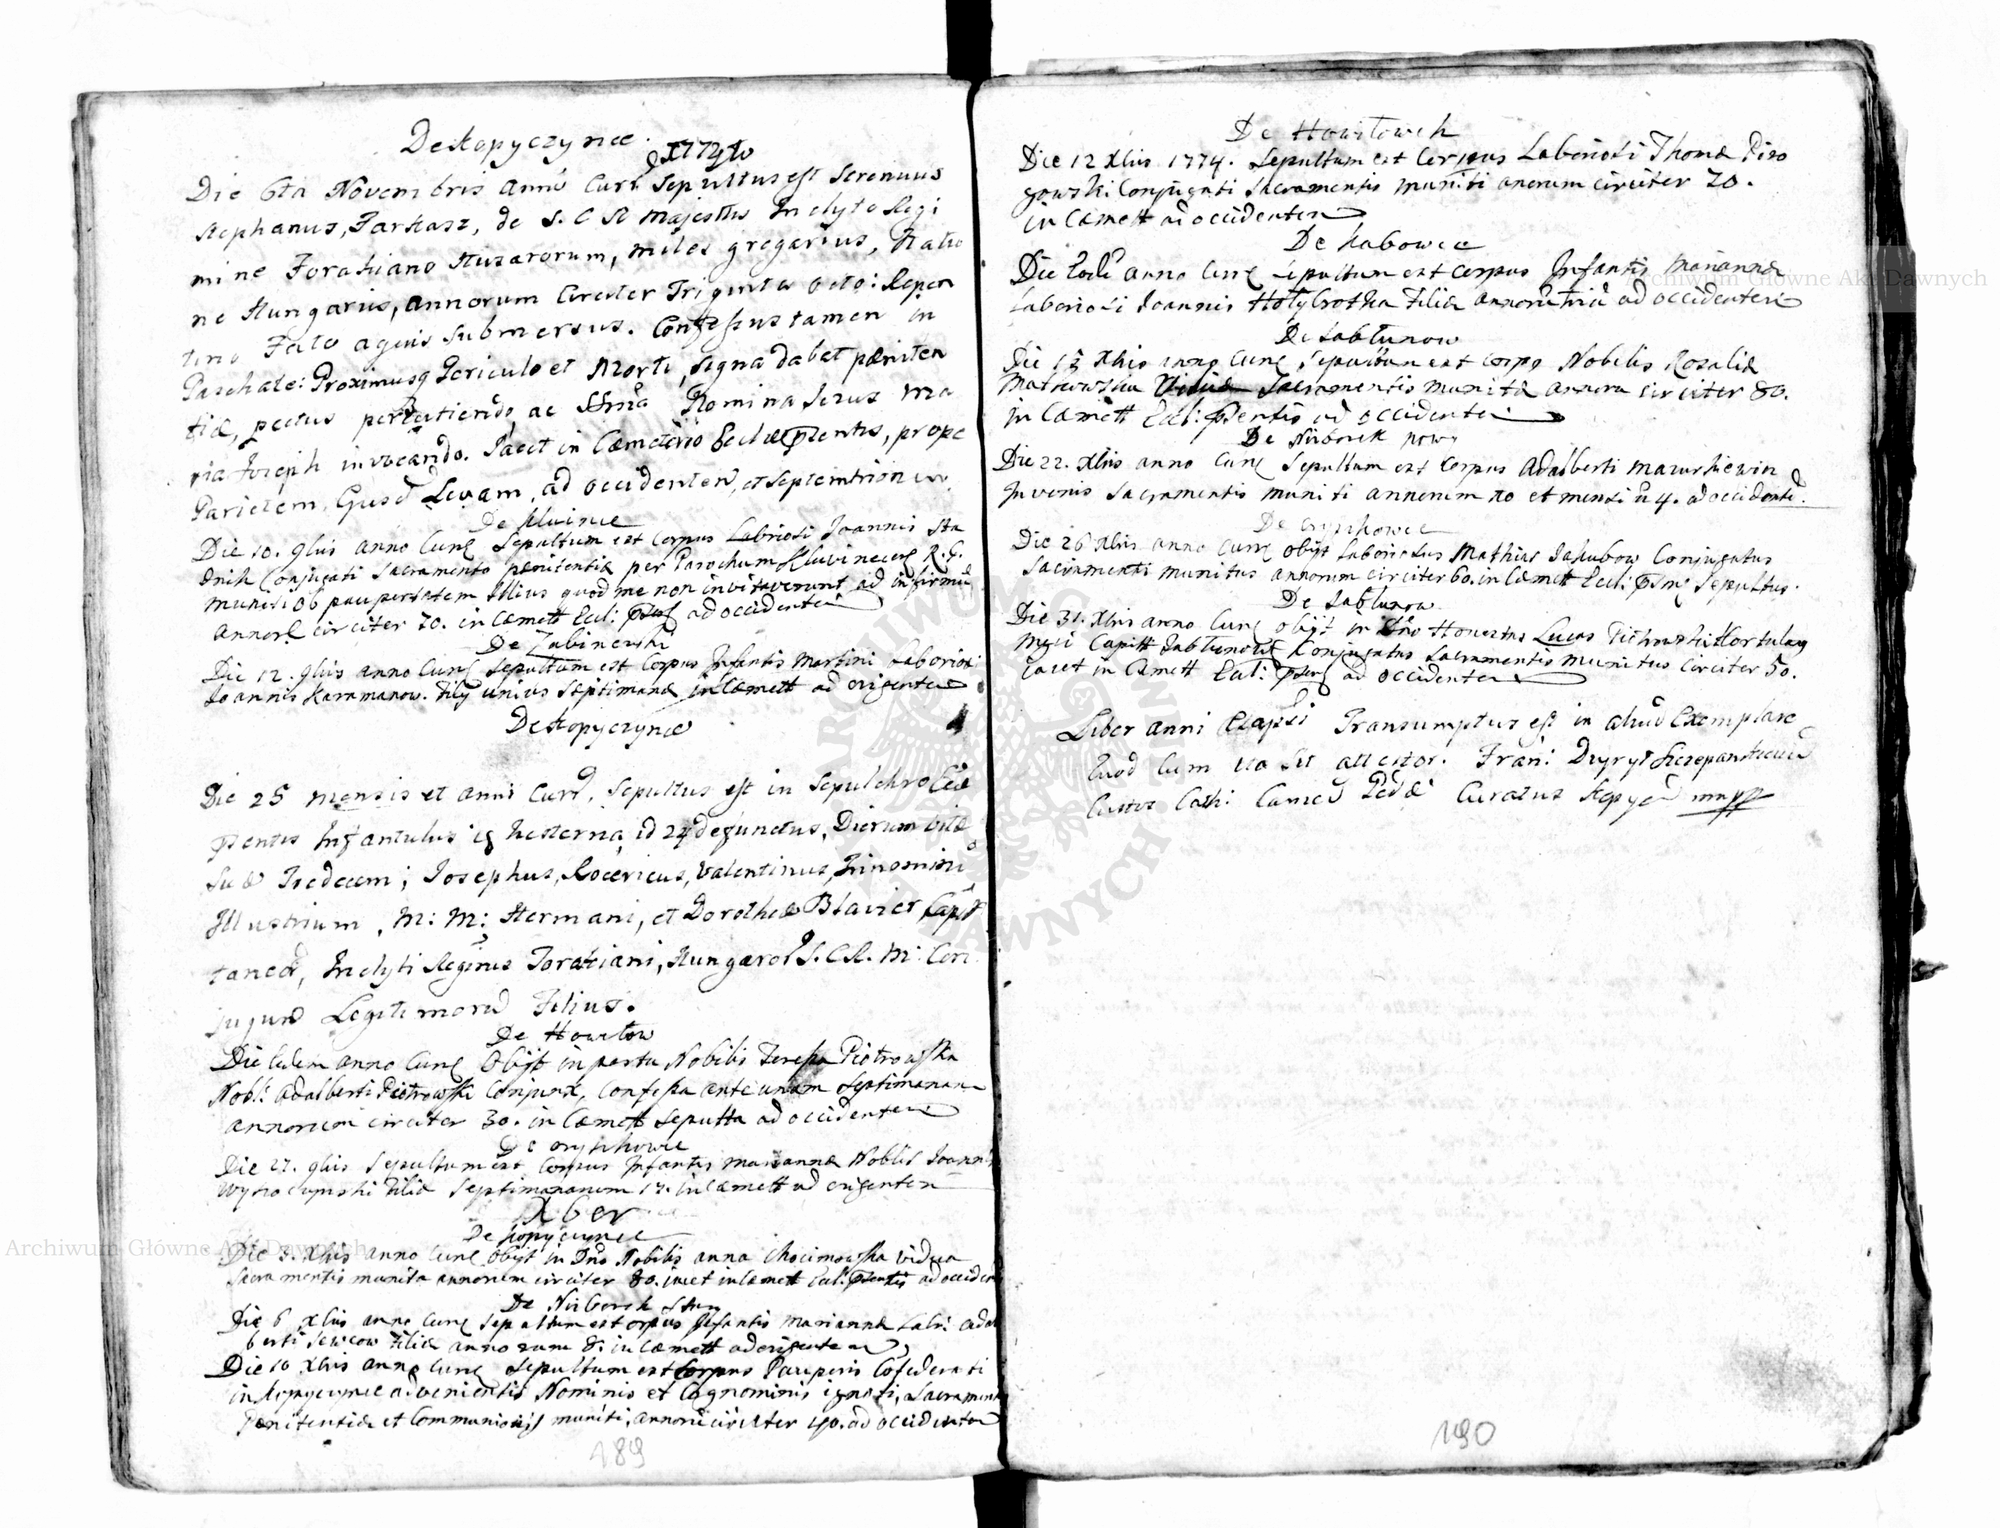 De Kopyczynce.
1774to
Die 6ta Novembris anno Curr. Sepultus est Serenuus
Stephanus, Farkasz, de S. C R Majestis Inclyto Regi
mine Forakiano Huzarorum, miles gregarius, Natio
ne Hungarius, annorum Circiter Triginta octo: Repen
tino Fato aquis submersus. Confessus tamen in
Paschate: Proximusq Periculo et Morti, signa dabat pæniten
tiæ, pectus percutiendo ac SSma Nomina Jesus Ma
ria Joseph invocando. Jacet in Cæmeterio Ecclæ Pæntis, prope
Parietem, Lævam, ad occidentem, et septemtrionem
De Kluince
Die 10. 9bris anno Curr Sepultum est Corpus Labriosi Joannis Sta
dnik Conjugati Sacramento pænitentiæ per Parochum Kluvinecen R. G.
muniti ob paupertatem Illius quod me non invitaverunt ad infirmū
annorū circiter 70. in Cæmett Eccl: ad occidentem
De Zabinecski
Die 12. 9bris anno Curr Sepultum est Corpus Infantis Martini Laboriosi
Joannis Karamanow. Filij unius Septimanæ in Cæmett ad origentem
De Kopyczynce
Die 25 mensis et anni Curr. Sepultus est in Sepulchro Eccæ
Psentis Infantulus hesterna id 24 defunctus, Dierum vitæ
suæ Tredecem; Josephus, Rocericus, Valentinus, Trinominū
Illustrium, M: M: Hermani, et Dorotheæ Blavier Capi
taneor, Inclyti Reginis Forakiani, Hungaror S. C. R. M: Con
jugum Legitimorum Filius.
De Howilow
Die eadem anno Curr Obijt in partu Nobilis Teressa Piotrowska
Nobl: Adalberti Piotrowski Conjunx, Confessa ante unam Septimanam
annorum circiter 30. in Cæmett Sepulta ad occidentem
De oryszkowce
Die 27. 9bris Sepultum est Corpus Infantis Mariannæ Noblis Joannis
Filiæ Septimanarum 17. in Cæmett ad origentem
Xber
De Kopyczynce
Die 3. Xbris anno Curr Obijt in Dno Nobilis anna Chocimowska vidua
Sacramentis munita annorum circiter 80. iacet in Cæmett Eccl: Psentis ad occiden
De Nizborek Stary
Die 6 Xbris anno Curr Sepultum est corpus Infantis Mariannæ Labri: Adal
berti Sewcow Filiæ annorum 8. in Cæmett ad origentem
Die 10 Xbris anno Curr Sepultum est Corpus Pauperis Cofederati
in Kopyczynce advenientis Nominis et Cognominis ignoti, Sacramento
Penitentiæ et Communionis muniti, annorū circiter 40. ad occidentem
189
De Howilowek
Die 12 Xbris 1774. Sepultum est Corpus Laboriosi Thomæ Piro
gowski Conjugati Sacramentis muniti anorum circiter 70.
in Cæmett ad occidentem
De Kabowce
Die Eode anno Curr Sepultum est Corpus Infantis Mariannæ
Laboriosi Joannis Filiæ annorū triū ad occidentem
De Jabłunow
Die Xbris anno Curr Sepultum est Corps Nobilis Rosaliæ
Matkowska Sacramentis munitæ annoru circiter 80.
in Cæmett Eccl: Psentis ad occidente
De Nizborek nowy
Die 22. Xbris anno Curr Sepultum est Corpus Adalberti Mazurkiewin
Juvenis Sacramentis muniti annorum 20 et mensiū 4. ad occidentē.
De oryszkowce
Die 26 Xbris anno Curr obijt Laboriosus Mathias Jakubow Conjugatus
Sacramentis munitus annorum circiter 60. in Cæmett Eccl: Sepultus.
De Jabłunow
Die 31. Xbris anno Curr obijt in Dno Honestus Lucas Hortulan
Jabłunowe Conjugatus Sacramentis munitus circiter 50.
Jacet in Cæmett Eccl: ad occidentem
Liber anni elapsi Transumptus est in aliud Exemplare
Quod Cum ita sit attestor. Fran:
Custos Cath: Camen Curatus Kopyc mpp
190
Archiwum Główne Akt Dawnych
Archiwum Główne Akt Dawnych
ARCHIWUM GŁÓWNE AKT DAWNYCH W WARSZAWIE